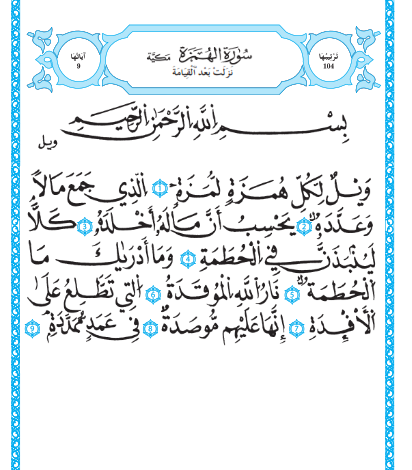 ترتيبها
104
سورة الهمزة مكية
نزلت بعد القيامة
آياتها
9
بِسْمِ اللَّهِ الرَّحْمَٰنِ الرَّحِيمِ
ويل
وَيْلٌ لِّكُلِّ هُمَزَةٍ لُّمَزَةٍ 1 الَّذِي جَمَعَ مَالًا
وَعَدَّدَهُ 2 يَحْسِبُ أَنَّ مَالَهُ أَخْلَدَهُ 3 كَلَّا
لَيُنْبَذَنَّ فِي الْحُطَمَةِ 4 وَمَا أَدْرَىٰكَ مَا
الْحُطَمَةُ 5 نَارُ اللَّهِ الْمُوقَدَةُ 6 الَّتِي تَطَّلِعُ عَلَى
الْأَفْئِدَةِ 7 إِنَّهَا عَلَيْهِم مُّوصَدَةٌ 8 فِي عَمَدٍ مُّمَدَّدَةٍ 9